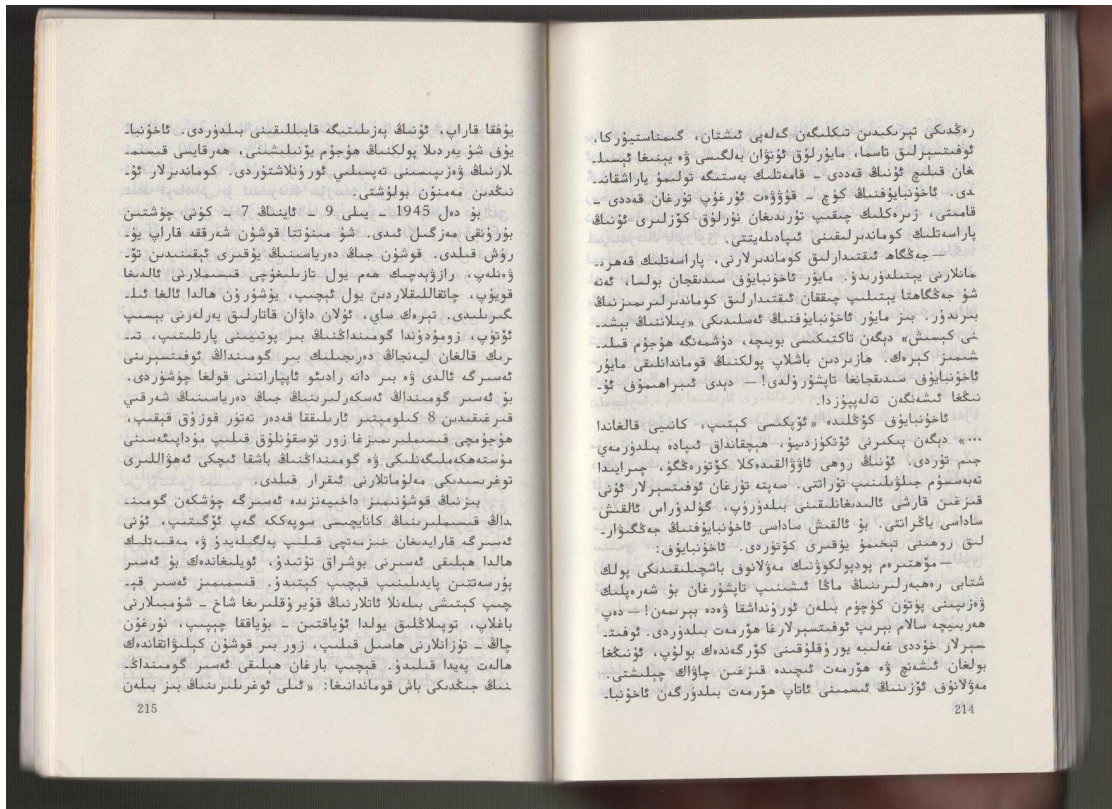 رەڭدىكى تېرىكىدىن تىكىلگەن گەلەپى ئىشتان، گىمناستيۇركا،
ئوفىتسېرلىق تاسما، مايۇرلۇق ئۇنۋان بەلگىسى ۋە يېنىغا ئېسىل-
غان قىلىچ ئۇنىڭ قەددى - قامەتلىك بەستىگە تولىمۇ ياراشقانىد-
دى. ئاخۇنبايۇفنىڭ كۈچ - قۇۋۋەت ئۇرغۇپ تۇرغان قەددى -
قامىتى، زىرەكلىك چىقىپ تۇرىدىغان نۇرلۇق كۆزلىرى ئۇنىڭ
پاراسەتلىك كوماندىرلىقىنى ئىپادىلەيتتى.
— جەڭگاھ ئىقتىدارلىق كوماندىرلارنى، پاراسەتلىك قەھر-
مانلارنى يېتىلدۈرىدۇ. مايۇر ئاخۇنبايۇف سىدىقجان بولسا، ئەنە
شۇ جەڭگاھتا يېتىلىپ چىققان ئىقتىدارلىق كوماندىرلىرىمىزنىڭ
بىرىدۇر. بىز مايۇر ئاخۇنبايۇفنىڭ ئەسلىدىكى «يىلاننىڭ بېشى-
نى كېسىش» دېگەن تاكتىكىسى بويىچە، دۈشمەنگە ھۇجۇم قىلى-
شىمىز كېرەك. ھازىردىن باشلاپ پولكنىڭ قوماندانلىقى مايۇر
ئاخۇنبايۇف سىدىقجانغا تاپشۇرۇلدى! — دېدى ئىبراھىمۇف ئۇ-
نىڭغا ئىشەنگەن تەلەپپۇزدا.
ئاخۇنبايۇف كۆڭلىدە «ئۆپكىسى كېتىپ، كانىيى قالغاندا
...» دېگەن پىكىرنى ئۆتكۈزدىيۇ، ھېچقانداق ئىپادە بىلدۈرمەي
جىم تۇردى. ئۇنىڭ روھى ئاۋۋالقىدەكلا كۆتۈرەڭگۈ، چىرايىدا
تەبەسسۇم جىلۋىلىنىپ تۇراتتى. سەپتە تۇرغان ئوفىتسېرلار ئۇنى
قىزغىن قارشى ئالىدىغانلىقىنى بىلدۈرۈپ، گۈلدۈراس ئالقىش
ساداسى ياڭراتتى. بۇ ئالقىش ساداسى ئاخۇنبايۇفنىڭ جەڭگىۋار-
لىق روھىنى تېخىمۇ يۇقىرى كۆتۈردى. ئاخۇنبايۇف:
— مۆھتىرەم پودپولكوۋنىك مەۋلانوف باشچىلىقىدىكى پولك
شتابى رەھبەرلىرىنىڭ ماڭا ئىشىنىپ تاپشۇرغان بۇ شەرەپلىك
ۋەزىپىنى پۈتۈن كۈچۈم بىلەن ئورۇنداشقا ۋەدە بېرىمەن! — دەپ
ھەربىيچە سالام بېرىپ ئوفىتسېرلارغا ھۆرمەت بىلدۈردى. ئوفىت-
سېرلار خۇددى غەلىبە يورۇقلۇقىنى كۆرگەندەك بولۇپ، ئۇنىڭغا
بولغان ئىشەنچ ۋە ھۆرمەت ئىچىدە قىزغىن چاۋاك چېلىشتى.
مەۋلانۇف ئۆزىنىڭ ئىسمىنى ئاتاپ ھۆرمەت بىلدۈرگەن ئاخۇنبا-
214
يۇفقا قاراپ، ئۇنىڭ پەزىلىتىگە قايىللىقىنى بىلدۈردى. ئاخۇنبا-
يۇف شۇ يەردىلا پولكنىڭ ھۇجۇم يۆنىلىشىنى، ھەرقايسى قىسىم-
لارنىڭ ۋەزىپىسىنى تەپسىلىي ئورۇنلاشتۇردى. كوماندىرلار ئۇ-
نىڭدىن مەمنۇن بولۇشتى.
بۇ دەل 1945 - يىلى 9 - ئاينىڭ 7 - كۈنى چۈشتىن
بۇرۇنقى مەزگىل ئىدى. شۇ مىنۇتتا قوشۇن شەرققە قاراپ يۈ-
رۈش قىلدى. قوشۇن جىڭ دەرياسىنىڭ يۇقىرى ئېقىنىدىن تۆ-
ۋەنلەپ، رازۋېدچىك ھەم يول تازىلىغۇچى قىسىملارنى ئالدىغا
قويۇپ، چاتقاللىقلاردىن يول ئېچىپ، يۇشۇرۇن ھالدا ئالغا ئىل-
گىرىلىدى. تېرەك ساي، ئۇلان داۋان قاتارلىق يەرلەرنى بېسىپ
ئۆتۈپ، زومۇدۇندا گومىنداڭنىڭ بىر پوتېيىنى پارتلىتىپ، تى-
رىك قالغان ليەنجاڭ دەرىجىلىك بىر گومىنداڭ ئوفىتسېرىنى
ئەسىرگە ئالدى ۋە بىر دانە رادىئو ئاپپاراتىنى قولغا چۈشۈردى.
بۇ ئەسىر گومىنداڭ ئەسكەرلىرىنىڭ جىڭ دەرياسىنىڭ شەرقىي
قىرغىقىدىن 8 كىلومېتىر ئارىلىققا قەدەر تەتۈر قوزۇق قېقىپ،
ھۇجۇمچى قىسىملىرىمىزغا زور توسقۇنلۇق قىلىپ مۇداپىئەسىنى
مۇستەھكەملىگەنلىكى ۋە گومىنداڭنىڭ باشقا ئىچكى ئەھۋاللىرى
توغرىسىدىكى مەلۇماتلارنى ئىقرار قىلدى.
بىزنىڭ قوشۇنىمىز داخىيەنزىدە ئەسىرگە چۈشكەن گومىن-
داڭ قىسىملىرىنىڭ كانايچىسى سوپەككە گەپ ئۆگىتىپ، ئۇنى
ئەسىرگە قارايدىغان خىزمەتچى قىلىپ بەلگىلەيدۇ ۋە مەقسەتلىك
ھالدا ھېلىقى ئەسىرنى بوشراق تۇتىدۇ. ئويلىغاندەك بۇ ئەسىر
پۇرسەتتىن پايدىلىنىپ قېچىپ كېتىدۇ. قىسمىمىز ئەسىر قې-
چىپ كېتىشى بىلەنلا ئاتلارنىڭ قۇيرۇقلىرىغا شاخ - شۈمبىلارنى
باغلاپ، توپىلاڭلىق يولدا ئۇياقتىن - بۇياققا چېپىپ، نۇرغۇن
چاڭ - تۇزانلارنى ھاسىل قىلىپ، زور بىر قوشۇن كېلىۋاتقاندەك
ھالەت پەيدا قىلىدۇ. قېچىپ بارغان ھېلىقى ئەسىر گومىنداڭ-
نىڭ جىڭدىكى باش قوماندانىغا: «ئىلى ئوغرىلىرىنىڭ بىز بىلەن
215